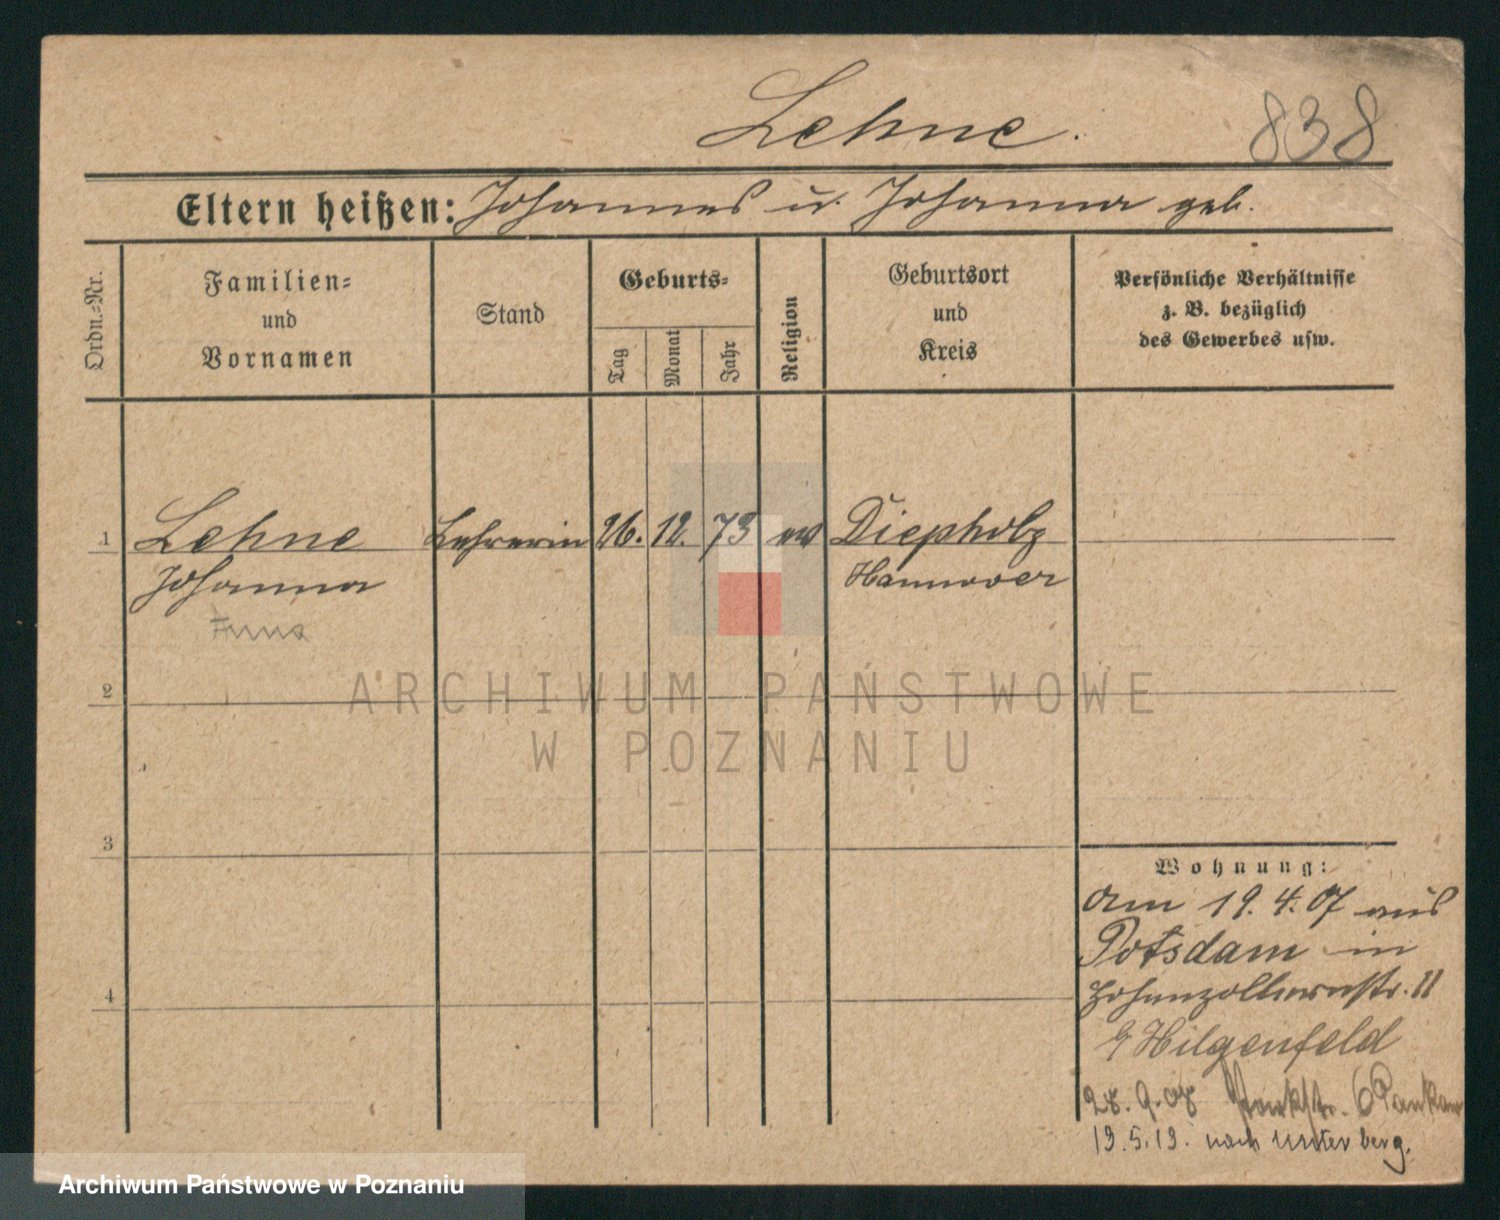 Lehne.
838
Eltern heißen: Johannes u. Johanna geb.
Ordn.-Nr.
Familien-
und
Vornamen
Stand
Geburts-
Tag
Monat
Jahr
Religion
Geburtsort
und
Kreis
Persönliche Verhältnisse
z. B. bezüglich
des Gewerbes usw.
1 Lehne Lehrerin 26. 12. 73 ev Diepholz
Johanna Hannover
Anna
2
ARCHIWUM PAŃSTWOWE
W POZNANIU
3
Wohnung:
Am 19.4.07 aus
Potsdam in
4
Hohenzollernstr. 11
Hilgenfeld
28.9.08 Parkstr. 6
13.5.19. nach Unterberg.
Archiwum Państwowe w Poznaniu